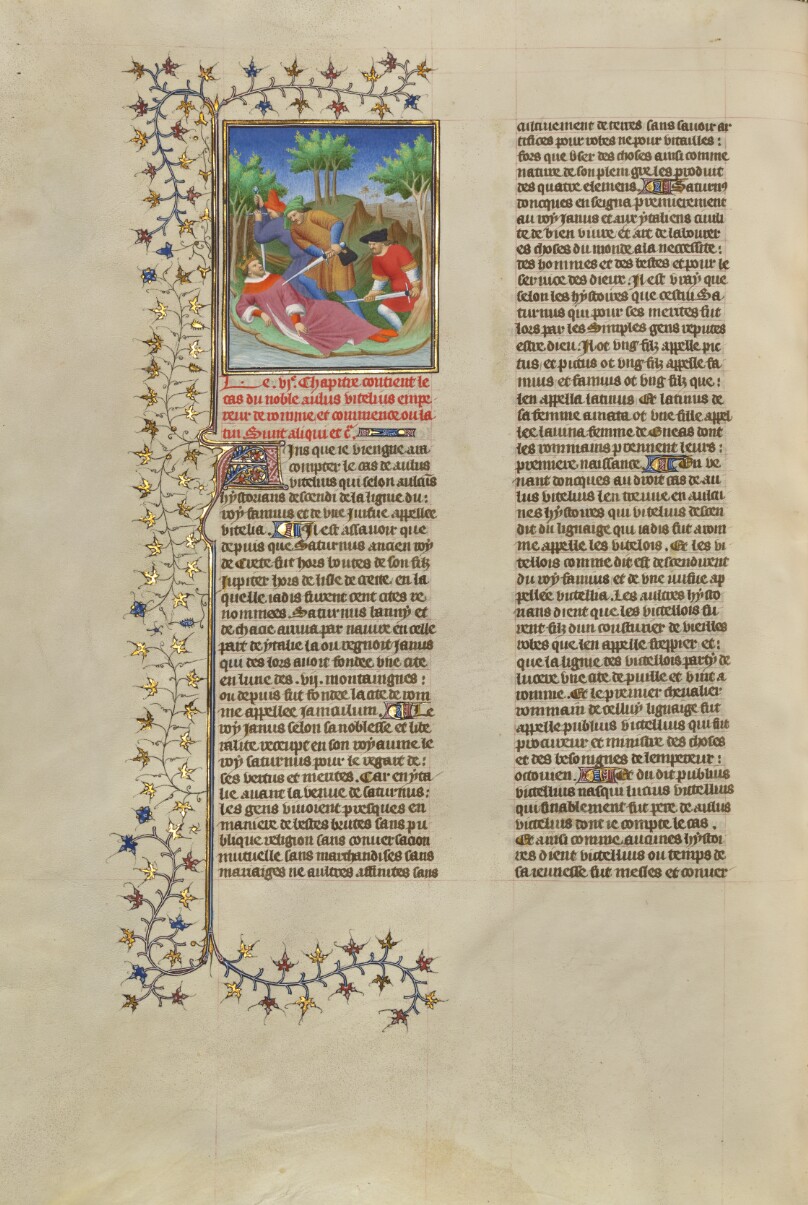 Le .vi.e Chapitre contient le
cas du noble aulus vitelius empe
reur de romme, et commence ou la
tin. Sunt aliqui et c̃.
Ains que ie viengne a ra
compter le cas de aulus
vitelius qui selon aulcũs
hystorians descendi de la lignie du:
roy faunus et de vne iuifue appellee
vitelia. Il est assauoir que
depuis que Saturnus ancien roy
de Crete fut hors boutes de son filz
Jupiter hors de lisle de crete, en la
quelle iadis furent cent cites re
nommees. Saturnus banny et
de chacie arriua par nauire en celle
part de ytalie la ou regnoit Janus
qui des lors auoit fondee vne cite
en lune des .vij. montaignes:
ou depuis fut fondee la cite de rom
me appellee Janiculum. Le
roy Janus selon sa noblesse et libe
ralite receupt en son royaume le
roy saturnus pour le regart de:
ses vertus et merites. Car en yta
lie auant la venue de saturnus:
les gens viuoient presques en
maniere de bestes brutes sans pu
blique religion sans conuersacion
mutuelle sans marchandises sans
mariaiges ne aultres affinites sans
cultiuement de terres sans sauoir ar
tifices pour robes ne pour vitailles:
fors que vser des choses ainsi comme
nature de son plein gre les produit
des quatre elemens. Saturnus
doncques enseigna premierement
au roy Janus et aux ytaliens ciuili
te de bien viure et art de labourer
es choses du monde a la necessite:
des hommes et des bestes et pour le
seruice des dieux. Il est vray que
selon les hystoires que cestui Sa
turnus qui pour ses merites fut
lors par les simples gens reputes
estre dieu. Il ot vng filz appelle pic
tus et pictus ot vng filz appelle fa
unus et faunus ot vng filz que:
len appella latinus. Et latinus de
sa femme amata ot vne fille appel
lee lauina femme de Eneas dont
les rommains prennent leurs:
premiere naissance. Ou ve
nant doncques au droit cas de au
lus vitelius len treuue en aulcu
nes hystoires qui vitelius descen
dit du lignaige qui iadis fut a rom
me appelle les vitelois. Et les vi
tellois comme dit est descendirent
du roy faunus et de vne iuifue ap
pellee vitellia. Les aultres hysto
rians dient que les vitellois fu
rent filz dun cousturier de vieilles
robes que len appelle freppier et:
que la lignie des vitellois party de
lucere vne cite de puille et vint a
romme. Et le premier cheualier
rommain de celluy lignaige fut
appelle publius vitellius qui fut
procureur et ministre des choses
et des besoingnes de lempereur:
octouien. Et du dit publius
vitellius nasqui lucius vitellius
qui finablement fut pere de aulus
vitelius dont ie compte le cas.
Et ainsi comme aucunes hystoi
res dient vitellius ou temps de
sa ieunesse fut mesles et conuer